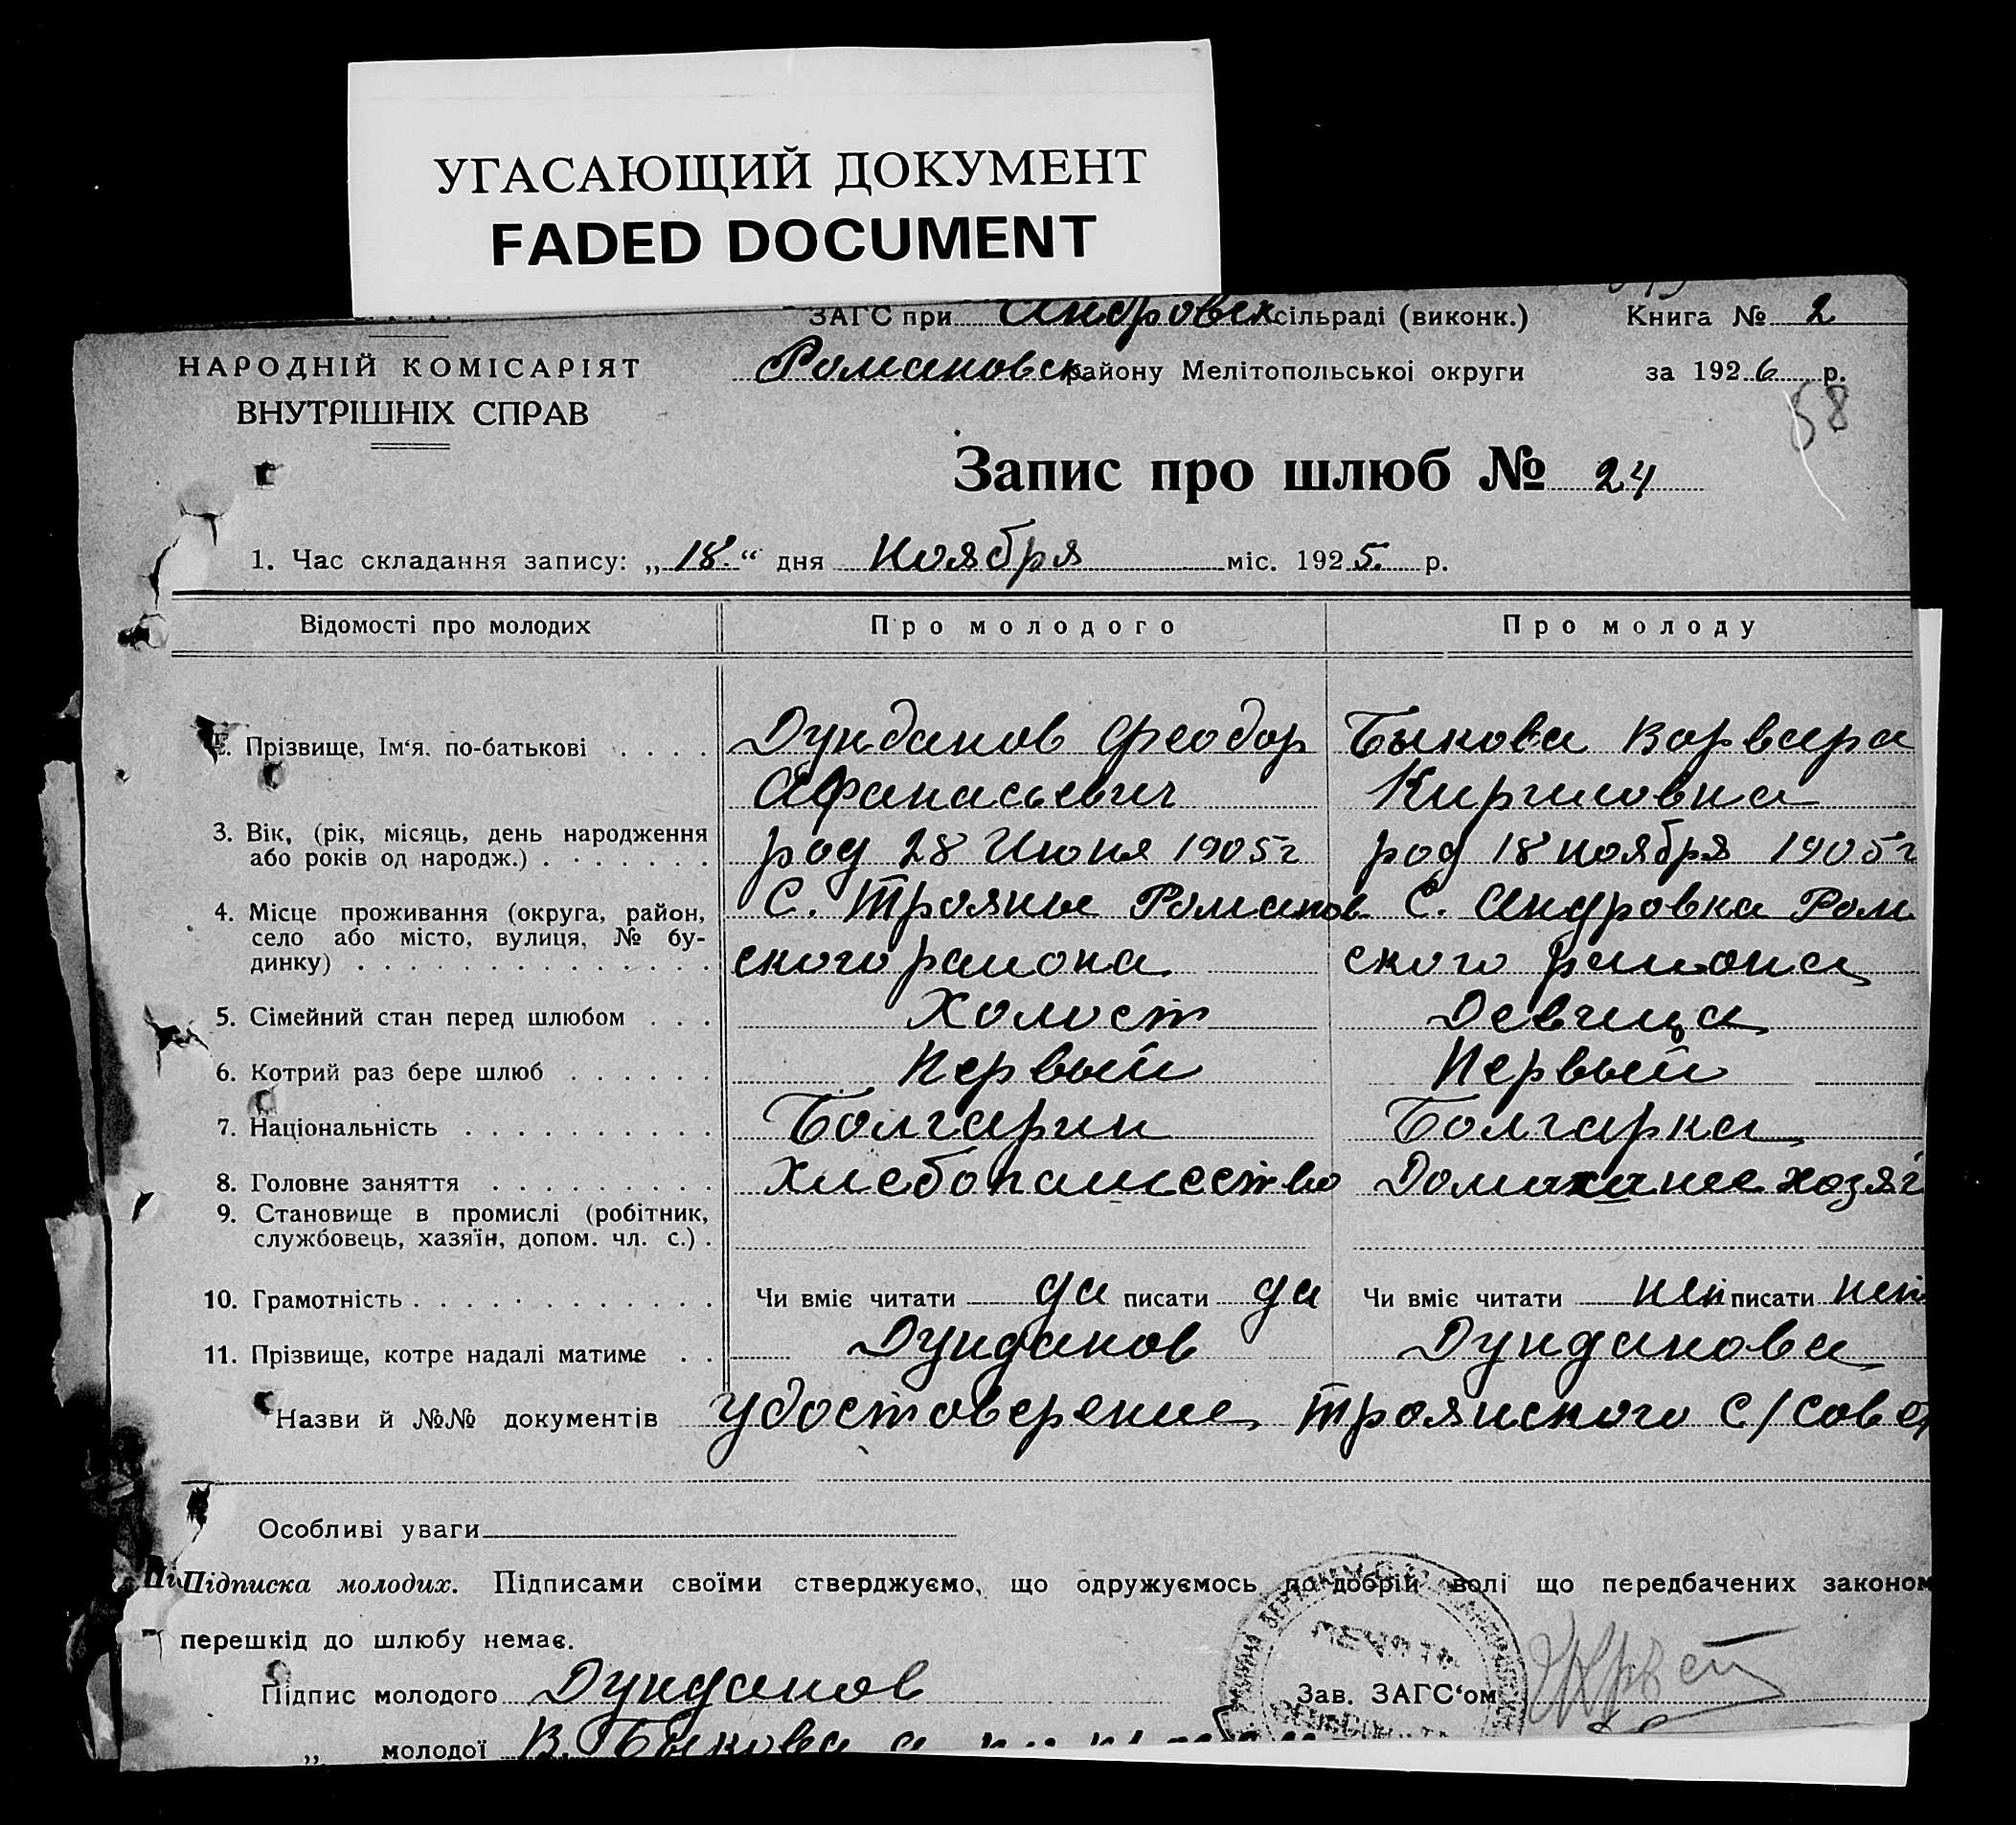 УГАСАЮЩИЙ ДОКУМЕНТ
FADED DOCUMENT
ЗАГС при Андровск сільраді (виконк.) Книга № 2
НАРОДНІЙ КОМІСАРІЯТ Романовск. району Мелітопольської округи за 1926 р.
ВНУТРІШНІХ СПРАВ 58
Запис про шлюб № 24
1. Час складання запису: „18.“ дня Ноября міс. 1925. р.
Відомості про молодих Про молодого Про молоду
Прізвище, Ім‘я. по-батькові . . . . Дунданов Феодор Быкова Варвара
Афанасьевич Кириловна
3. Вік, (рік, місяць, день народження род 28 Июня 1905 г род 18 ноября 1905 г
або років од народж.) . . . . . . .
4. Місце проживання (округа, район, С. Трояны Романов С. Андровка Ром
село або місто, вулиця, № бу-
динку) . . . . . . . . . . . . . . ского района ского района
5. Сімейний стан перед шлюбом . . . Холост Девица
6. Котрий раз бере шлюб . . . . . . Первый Первый
7. Національність . . . . . . . . . . Болгарин Болгарка
8. Головне заняття . . . . . . . . . Хлебопашество хозяй
9. Становище в промислі (робітник,
службовець, хазяїн, допом. чл. с.) .
10. Грамотність . . . . . . . . . . . . Чи вміє читати да писати да Чи вміє читати нет писати нет
11. Прізвище, котре надалі матиме . . Дунданов Дунданова
Назви й №№ документів удостоверение Троянского с/сове
Особливі уваги
Підписка молодих. Підписами своїми стверджуємо, що одружуємось по добрій волі що передбачених законом
перешкід до шлюбу немає.
Підпис молодого Дунданов Зав. ЗАГС‘ом
„ молодої В. Быкова а